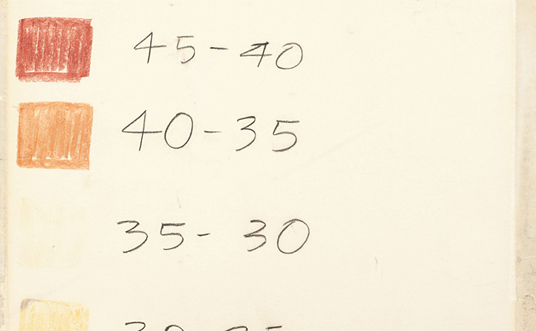 45-40
40-35
35-30